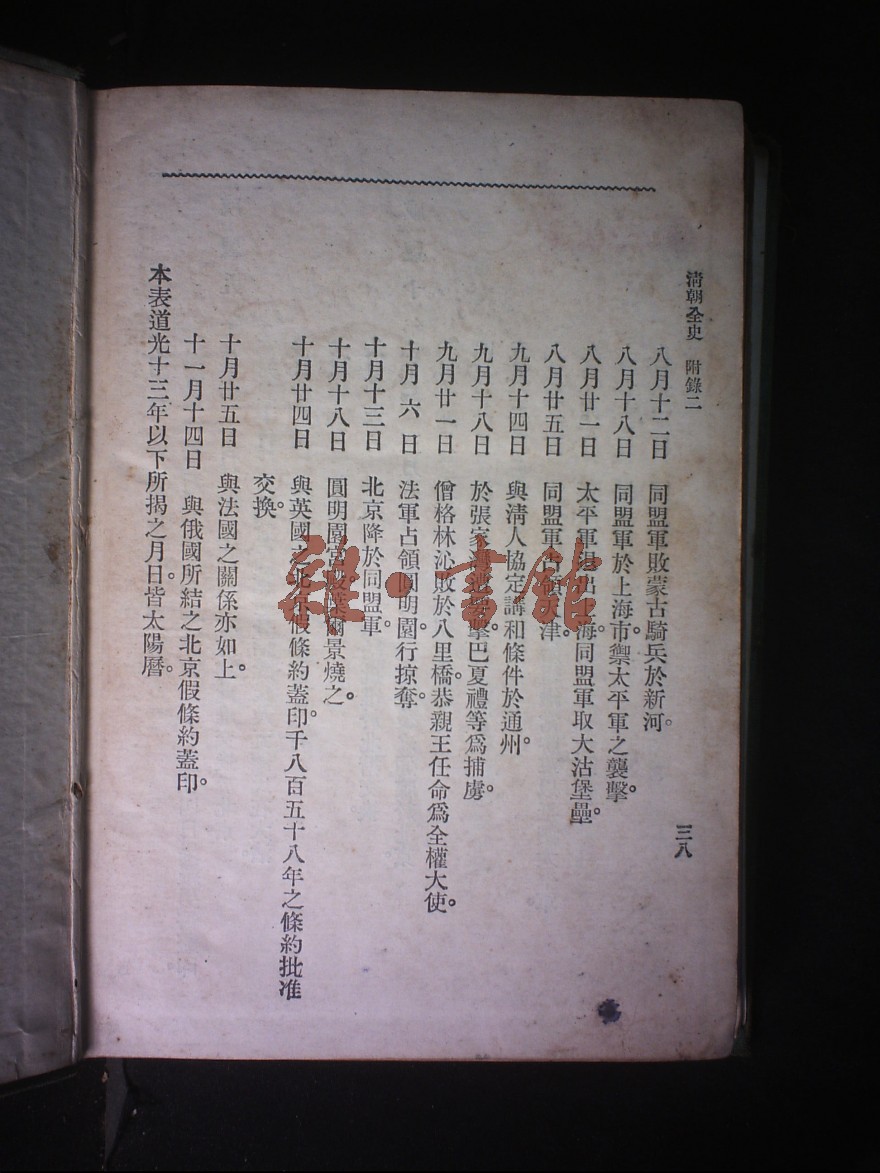 清朝全史　附錄二
三八
八月十二日　同盟軍敗蒙古騎兵於新河。
八月十八日　同盟軍於上海市禦太平軍之襲擊。
八月廿一日　太平軍退出上海同盟軍取大沽堡壘。
八月廿五日　同盟軍占領天津。
九月十四日　與淸人協定講和條件於通州。
九月十八日　於張家灣遭襲擊巴夏禮等爲捕虜。
九月廿一日　僧格林沁敗於八里橋。恭親王任命爲全權大使。
十月六日　法軍占領圓明園。行掠奪。
十月十三日　北京降於同盟軍。
十月十八日　圓明園宮殿葉爾景燒之。
十月廿四日　與英國之北京假條約蓋印。千八百五十八年之條約批准
交換。
十月廿五日　與法國之關係亦如上。
十一月十四日　與俄國所結之北京假條約蓋印。
本表道光十三年以下所揭之月日。皆太陽曆。
雜·書館